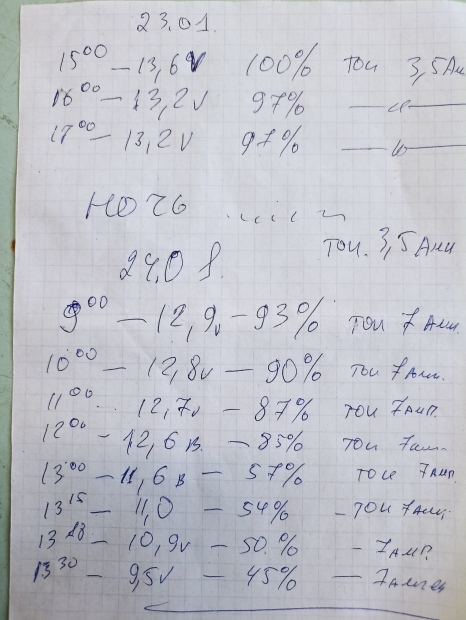 23.01.
15⁰⁰ – 13,6V 100% ток 3,5Ам
16⁰⁰ – 13,2v 97% —〃—
17⁰⁰ – 13,2v 97% —〃—
ночь
ток. 3,5 Амп
24.01.
9⁰⁰ – 12,9v – 93% ток 7 Амп.
10⁰⁰ – 12,8v – 90% ток 7 Амп.
11⁰⁰ 12,7v – 87% ток 7 Амп.
12⁰⁰ – 12,6 в. – 85% ток 7 амп
13⁰⁰ – 11,6 в – 57% ток 7 Амп.
13¹⁵ – 11,0 – 54% – ток 7 Амп
– 10,9v – 50.% – 7 Амп.
13³⁰ – 9,5v – 45% – 7 Ампер